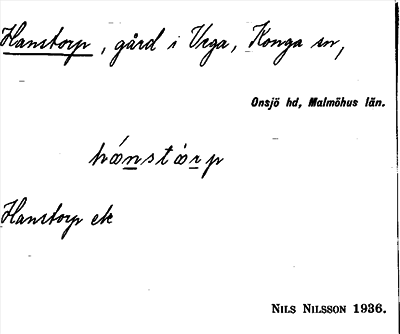 Hanstorp, gård i Vrga, Konga sn,
Onsjö hd, Malmöhus län.
hánstårp
Hanstorp ek
NILS NILSSON 1936.